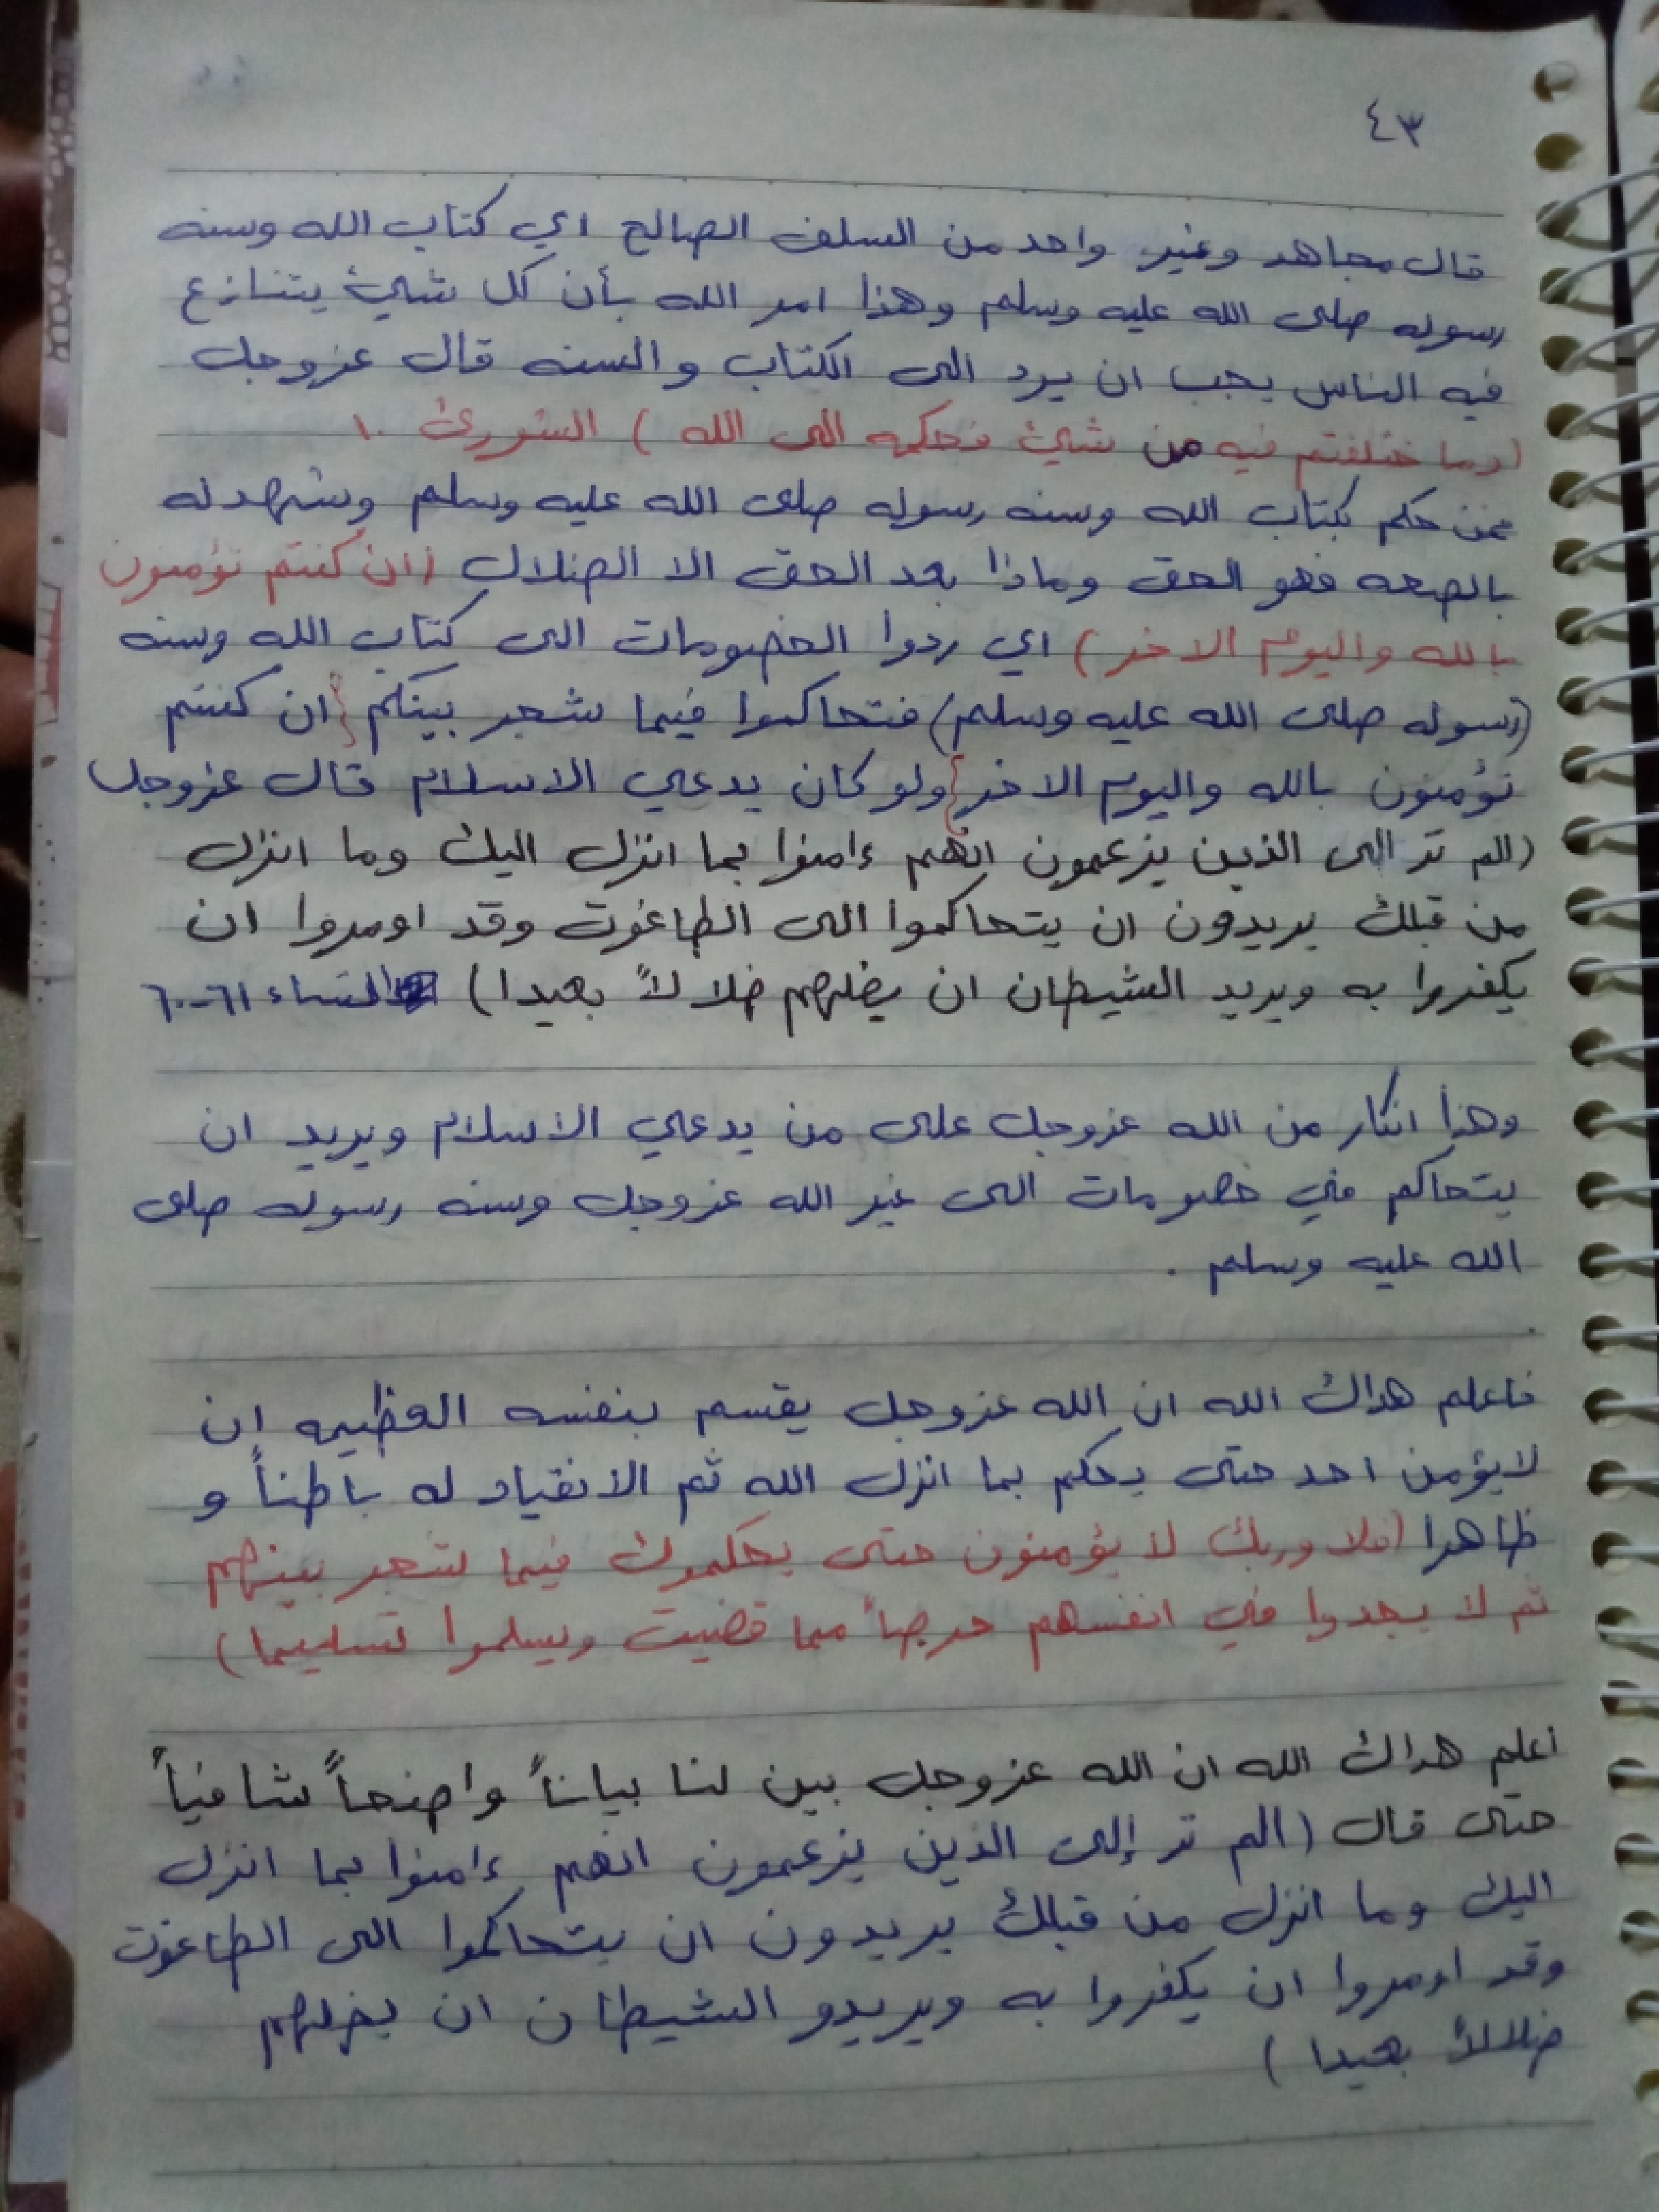 ٤٣
قال مجاهد وغير واحد من السلف الصالح اي كتاب الله وسنه
رسوله صلى الله عليه وسلم وهذا امر الله بأن كل شيئ يتنازع
فيه الناس يجب ان يرد الى الكتاب والسنه قال عزوجل
(وما ختلفتم فيه من شيئ فحكمه الى الله ) الشورئ ١٠
فمن حكم بكتاب الله وسنه رسوله صلى الله عليه وسلم وشهد له
بالصحه فهو الحق وماذا بعد الحق الا الضلال (ان كنتم تؤمنون
بالله واليوم الاخر ) اي ردوا الخصومات الى كتاب الله وسنه
(رسوله صلى الله عليه وسلم) فتحاكموا فيما شجر بينكم {ان كنتم
تؤمنون بالله واليوم الاخر} ولو كان يدعي الاسلام قال عزوجل
(الم تر الى الذين يزعمون انهم ءامنوا بما انزل اليك وما انزل
من قبلك يريدون ان يتحاكموا الى الطاغوت وقد اومروا ان
يكفروا به ويريد الشيطان ان يضلهم ضلالاً بعيدا ) النساء ٦١-٦٠
وهذا انكار من الله عزوجل على من يدعي الاسلام ويريد ان
يتحاكم في خصومات الى غير الله عزوجل وسنه رسوله صلى
الله عليه وسلم .
فاعلم هداك الله ان الله عزوجل يقسم بنفسه العظيمه ان
لايؤمن احد حتى يحكم بما انزل الله ثم الانقياد له باطناً و
ظاهرا (فلا وربك لا يؤمنون حتى يحكموك فيما شجر بينهم
ثم لا يجدوا في انفسهم حرجاً مما قضيت ويسلموا تسليما )
اعلم هداك الله ان الله عزوجل بين لنا بياناً واضحاً شافياً
حتى قال (الم تر إلى الذين يزعمون انهم ءامنوا بما انزل
اليك وما انزل من قبلك يريدون ان يتحاكموا الى الطاغوت
وقد اومروا ان يكفروا به ويريدو الشيطان ان يضلهم
ضلالاً بعيدا )